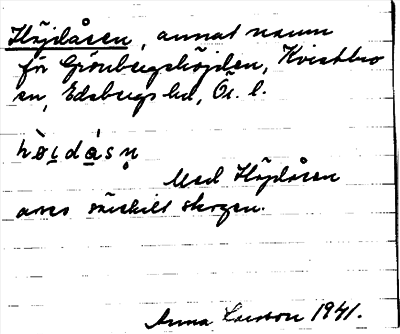 Höjdåsen, annat namn
för Grönbergshöjden, Kvistbro
sn, Edsbergs hd, Ör. l.
Med Höjdåsen
avses särskilt skogen.
Anna Larsson 1941.